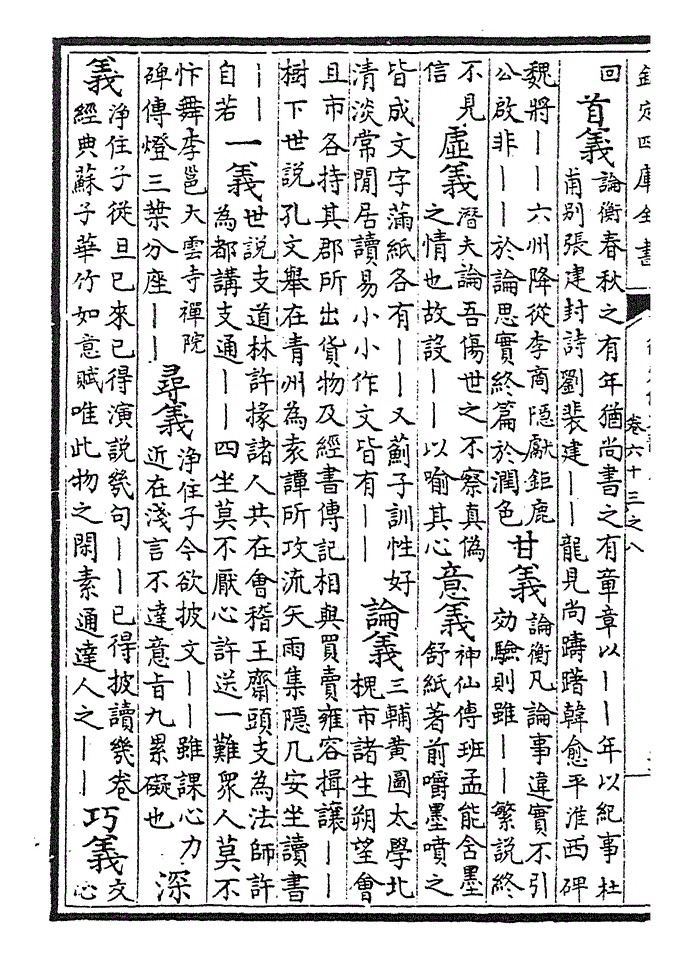 欽定四庫全書
卷六十三之八
回
首義
論衡春秋之有年猶尚書之有章章以——年以紀事杜
甫别張建封詩劉裴建——龍見尚躊躇韓愈平淮西碑
魏將——六州降從李商隠獻鉅鹿
公啟非——於論思實終篇於潤色
甘義
論衡凡論事違實不引
効驗則雖——繁説終
不見
信
虛義
潛夫論吾傷世之不察真偽
之情也故設——以喻其心
意義
神仙傳班孟能含墨
舒紙著前嚼墨噴之
皆成文字滿紙各有——又薊子訓性好
清淡常閒居讀易小小作文皆有——
論義
三輔黄圖太學北
槐市諸生朔望會
且市各持其郡所出貨物及經書傳記相與買賣雍容揖讓——
樹下世説孔文舉在青州為袁譚所攻流矢雨集隱几安坐讀書
——
自若
一義
世説支道林許掾諸人共在會稽王齋頭支為法師許
為都講支通——四坐莫不厭心許送一難衆人莫不
忭舞李邕大雲寺禪院
碑傳燈三葉分座——
尋義
淨住子今欲披文——雖課心力
近在淺言不達意旨九累礙也
深
義
淨住子從旦已來已得演説幾句——已得披讀幾卷
經典蘇子華竹如意賦唯此物之閑素通達人之——
巧義
文
心